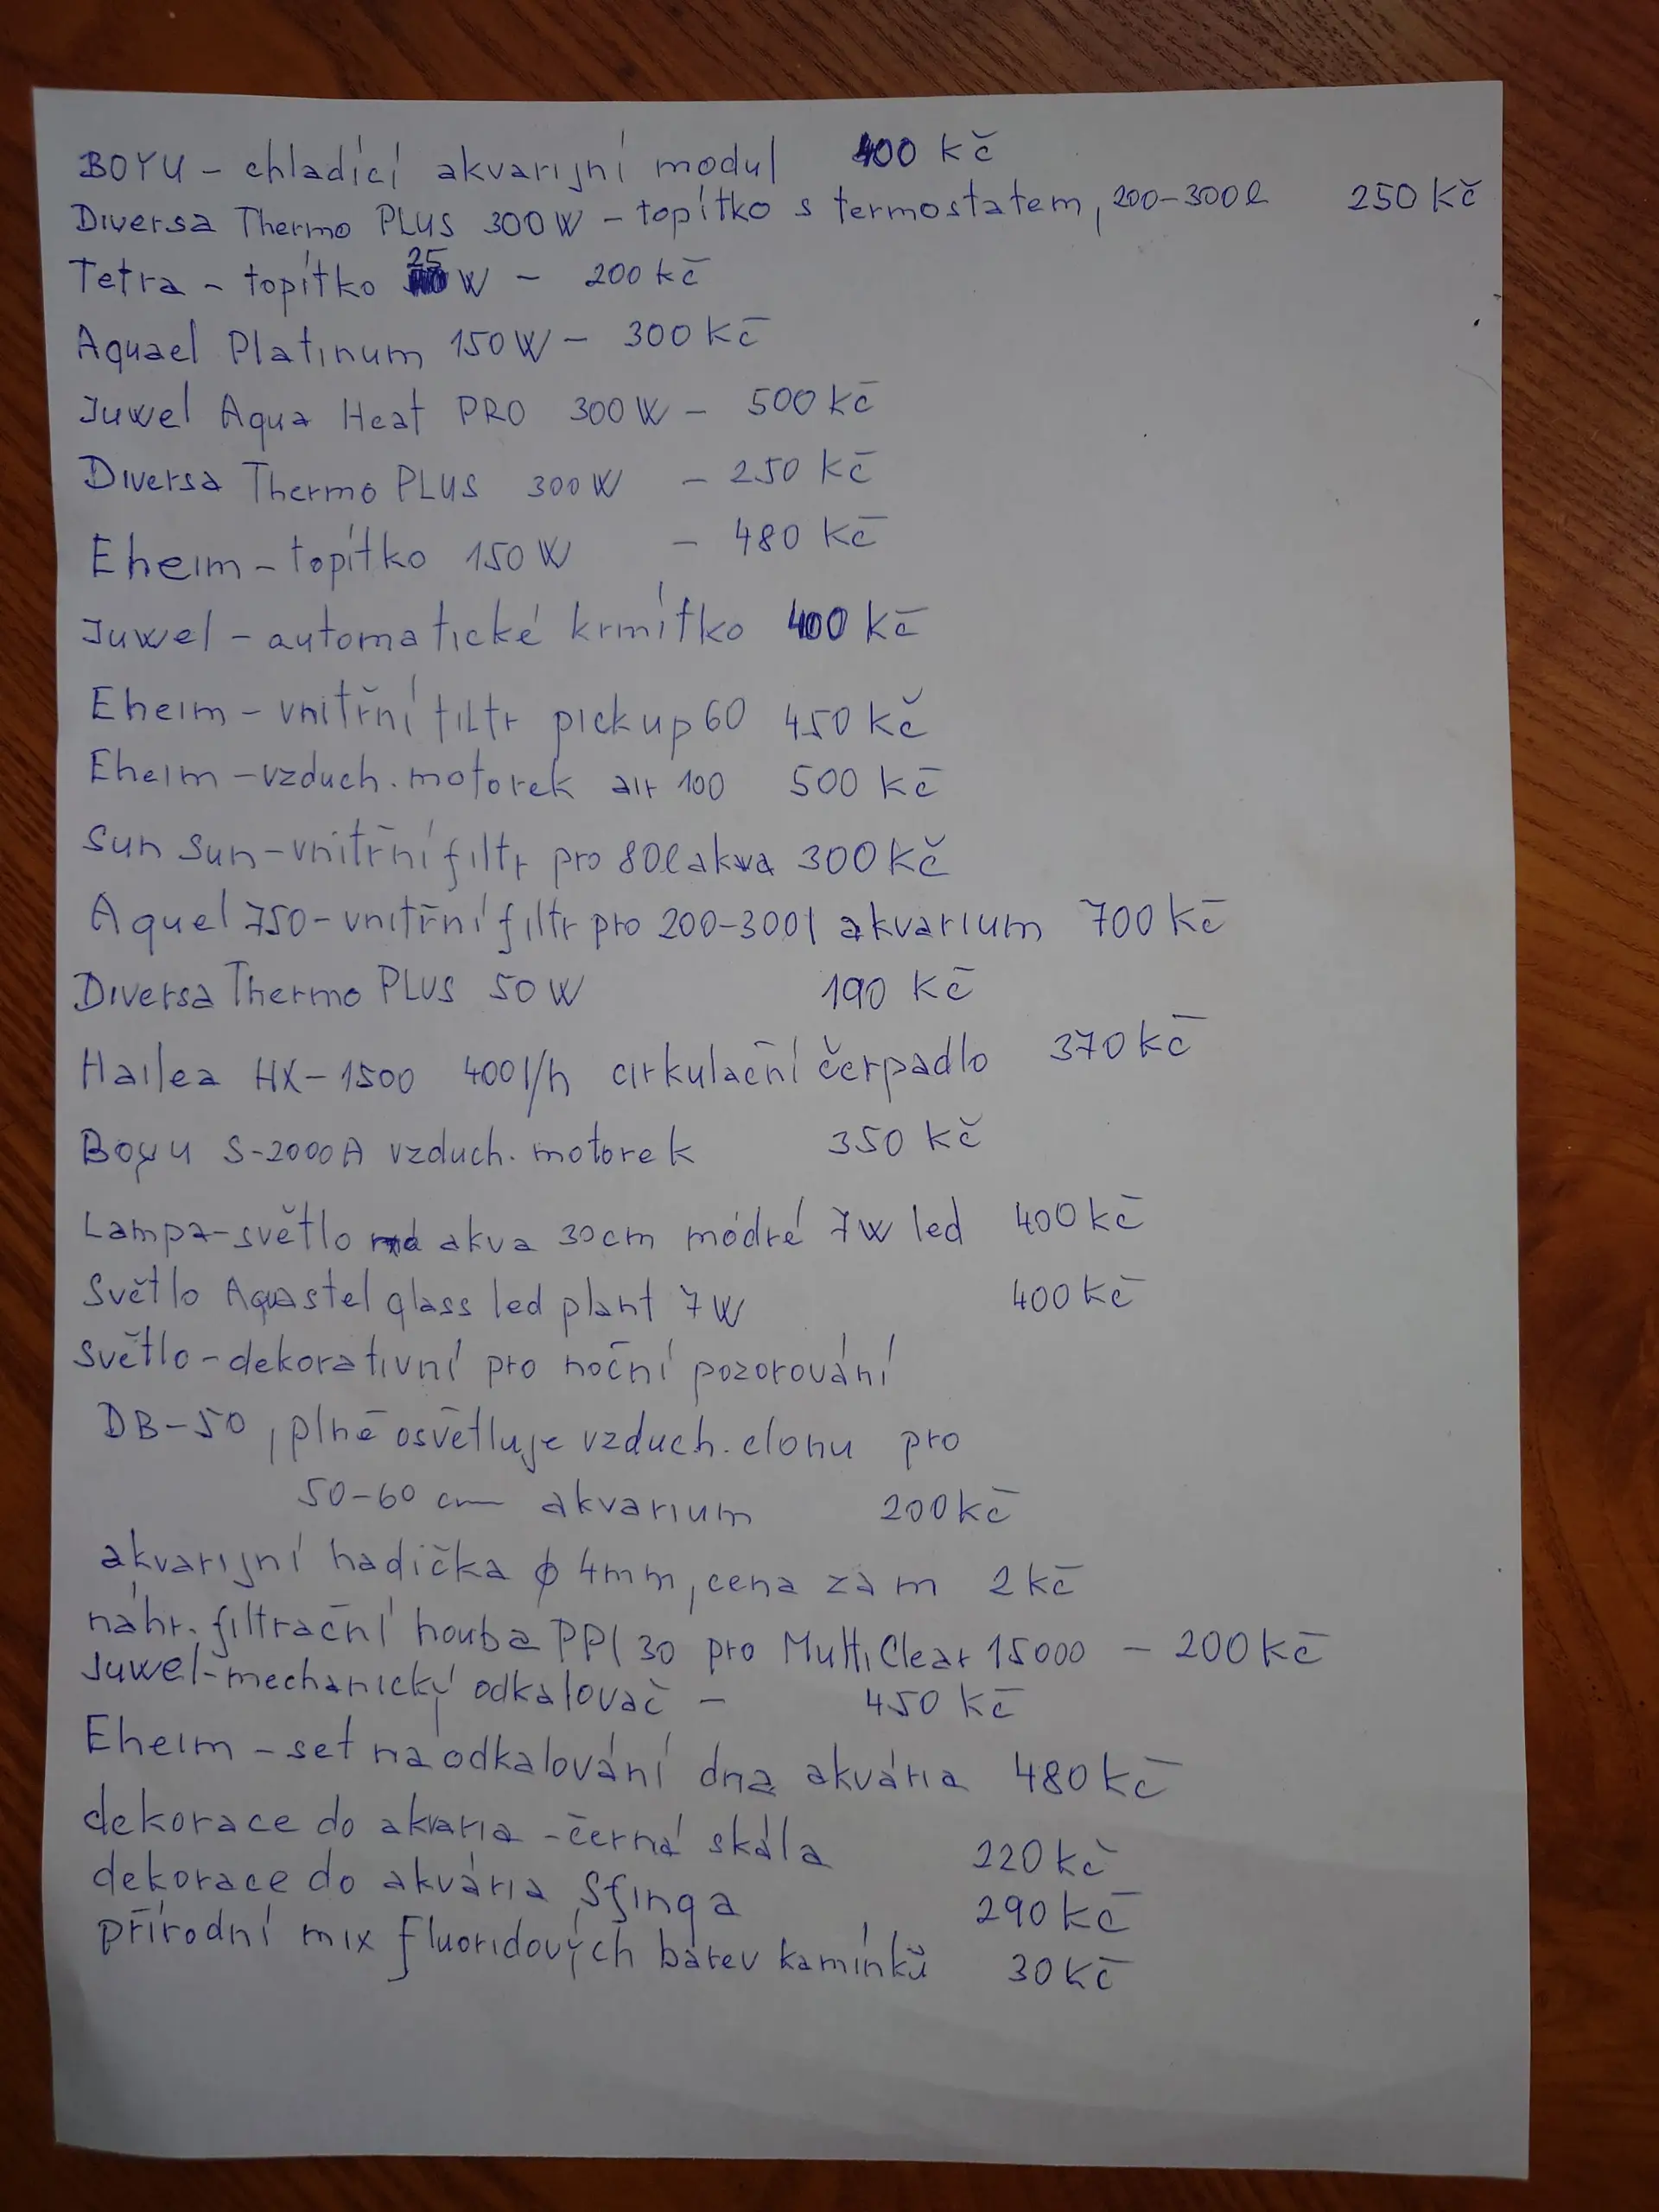 BOYU - chladící akvarijní modul 400 Kč
Diversa Thermo PLUS 300W - topítko s termostatem, 200-300l 250 Kč
Tetra - topítko 25 W - 200 Kč
Aquael Platinum 150W - 300 Kč
Juwel Aqua Heat PRO 300W - 500 Kč
Diversa Thermo PLUS 300W - 250 Kč
Eheim - topítko 150W - 480 Kč
Juwel - automatické krmítko 400 Kč
Eheim - vnitřní filtr pickup 60 450 Kč
Eheim - vzduch. motorek air 100 500 Kč
Sun Sun - vnitřní filtr pro 80l akva 300 Kč
Aquel 750 - vnitřní filtr pro 200-300l akvarium 700 Kč
Diversa Thermo PLUS 50W 190 Kč
Hailea HX-1500 400l/h cirkulační čerpadlo 370 Kč
Boyu S-2000A vzduch. motorek 350 Kč
Lampa-světlo na akva 30cm módré 7W led 400 Kč
Světlo Aquastel glass led plant 7W 400 Kč
Světlo - dekorativní pro noční pozorování
DB-50, plně osvětluje vzduch. clonu pro
50-60 cm akvarium 200 Kč
akvarijní hadička φ 4mm, cena za m 2 Kč
náhr. filtrační houba PPI 30 pro MultiClear 15000 - 200 Kč
Juwel-mechanický odkalovač - 450 Kč
Eheim - set na odkalování dna akvária 480 Kč
dekorace do akvaria - černá skála 220 Kč
dekorace do akvária Sfinga 290 Kč
přírodní mix fluoridových barev kamínků 30 Kč